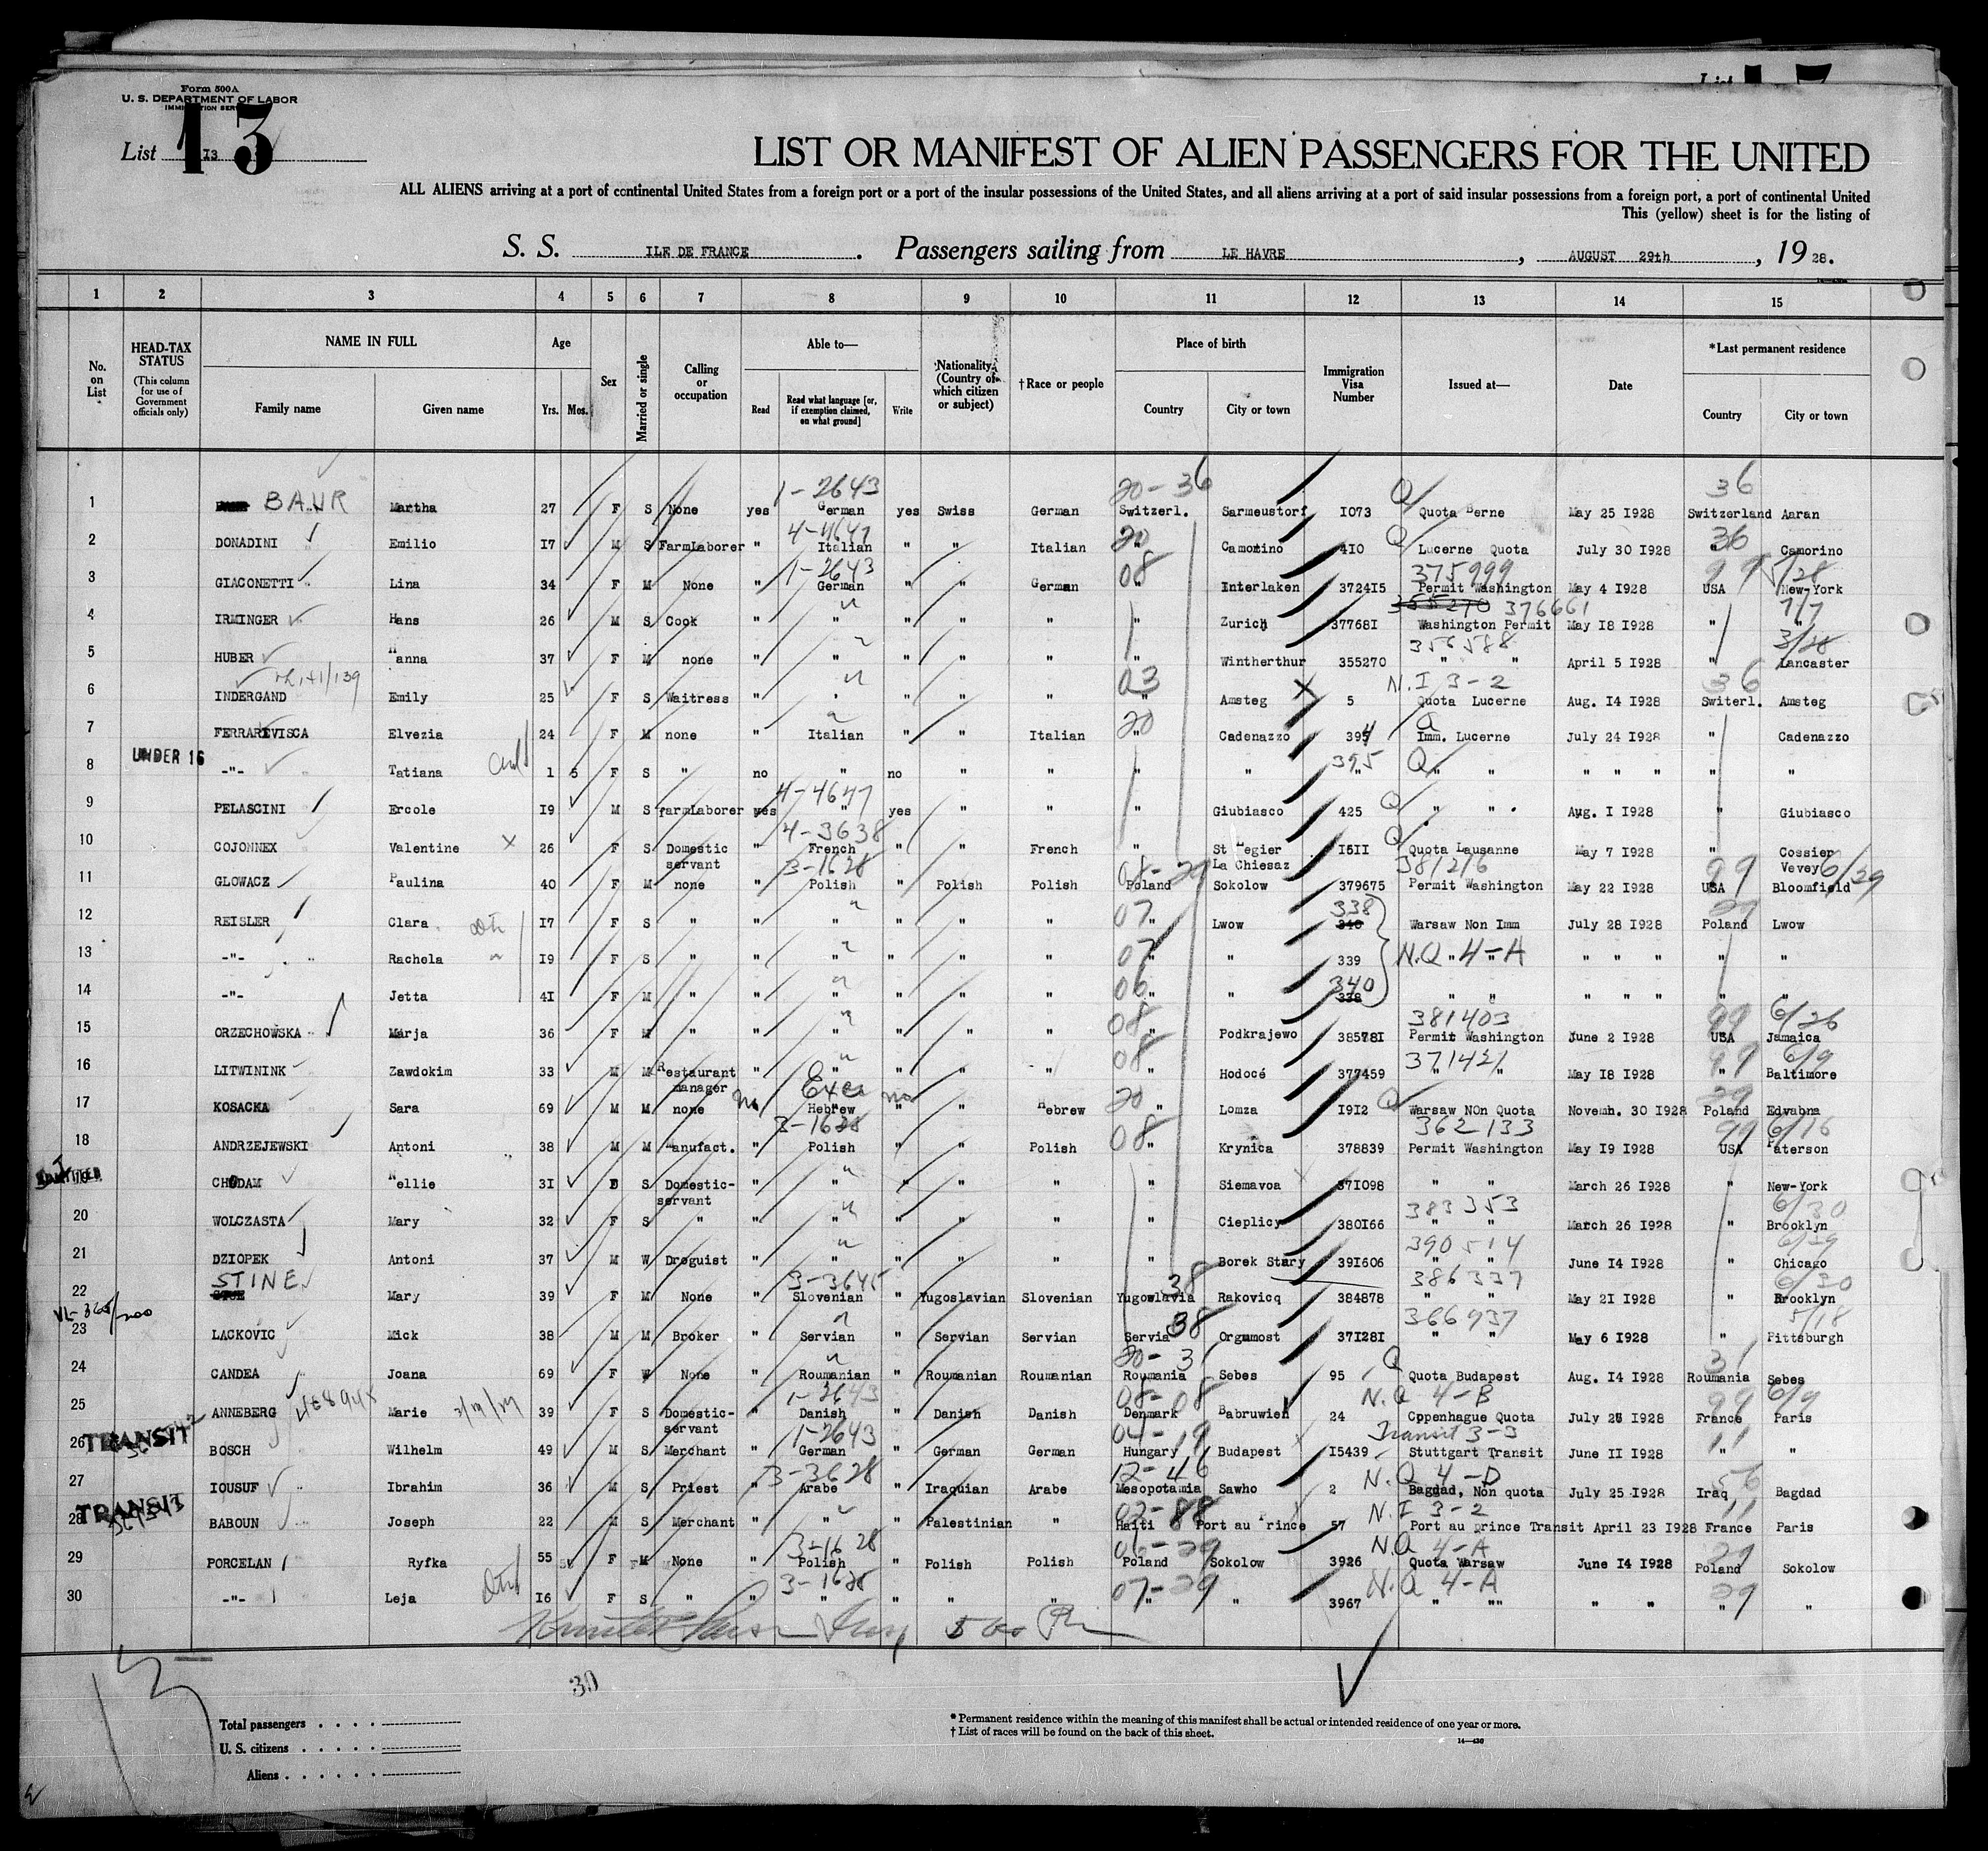 Form 500A
U. S. DEPARTMENT OF LABOR
List 13
13
LIST OR MANIFEST OF ALIEN PASSENGERS FOR THE UNITED
ALL ALIENS arriving at a port of continental United States from a foreign port or a port of the insular possessions of the United States, and all aliens arriving at a port of said insular possessions from a foreign port, a port of continental United
This (yellow) sheet is for the listing of
S. S. ILE DE FRANCE. Passengers sailing from LE HAVRE, AUGUST 29th, 1928.
1 2 3 4 5 6 7 8 9 10 11 12 13 14 15
No. on List
HEAD-TAX STATUS (This column for use of Government officials only)
NAME IN FULL Family name Given name
Age Yrs. Mos.
Sex
Married or single
Calling or occupation
Able to— Read Read what language [or, if exemption claimed, on what ground] Write
Nationality (Country of which citizen or subject)
†Race or people
Place of birth Country City or town
Immigration Visa Number
Issued at—
Date
*Last permanent residence Country City or town
1-2643 20-36 Q 36
1 BAUR Martha 27 F S None yes German yes Swiss German Switzerl. Sarmeustorf I073 Quota Berne May 25 I928 Switzerland Aaran
4-4647 20 Q 36
2 DONADINI Emilio I7 M S FarmLaborer " Italian " " Italian " Camorino 4I0 Lucerne Quota July 30 I928 " Camorino
1-2643 08 375999 99 5/28
3 GIACONETTI Lina 34 F M None " German " " German " Interlaken 3724I5 Permit Washington May 4 I928 USA New-York
355270 376661 7/7
4 IRMINGER Hans 26 M S Cook " " " " " " Zurich 37768I Washington Permit May I8 I928 " "
356588 3/28
5 HUBER Hanna 37 F M none " " " " " " Wintherthur 355270 " " April 5 I928 " Lancaster
03 N.I 3-2 36
6 INDERGAND Emily 25 F S Waitress " " " " " " Amsteg 5 Quota Lucerne Aug. I4 I928 Switerl. Amsteg
20 Q
7 FERRARIVISCA Elvezia 24 F M none " Italian " " Italian " Cadenazzo 394 Imm. Lucerne July 24 I928 " Cadenazzo
UNDER 16 395 Q
8 -"- Tatiana 1 5 F S " no " no " " " " " " " " " " " "
4-4647 Q
9 PELASCINI Ercole I9 M S farmLaborer yes " yes " " " Giubiasco 425 " " Aug. I I928 " Giubiasco
4-3638 Q
10 COJONNEX Valentine 26 F S Domestic servant " French " " French " St Legier La Chiesaz I6II Quota Lausanne May 7 I928 " Cossier Vevey
3-1628 08-29 381216 99 6/29
11 GLOWACZ Paulina 40 F M none " Polish " Polish Polish Poland Sokolow 379675 Permit Washington May 22 I928 USA Bloomfield
07 338 29
12 REISLER Clara I7 F S " " " " " " " Lwow 340 Warsaw Non Imm July 28 I928 Poland Lwow
07 N.Q 4-A
13 -"- Rachela I9 F S " " " " " " " " 339 " " " " " " "
06 340
14 -"- Jetta 4I F M " " " " " " " " 338 " " " " " " "
08 381403 99 6/26
15 ORZECHOWSKA Marja 36 F M " " " " " " " Podkrajewo 38578I Permit Washington June 2 I928 USA Jamaica
08 371421 99 6/9
16 LITWININK Zawdokim 33 M M Restaurant manager " " " " " " Hodocé 377459 " " May I8 I928 " Baltimore
no no 20 Q 29
17 KOSACKA Sara 69 M M none Hebrew " " Hebrew " Lomza I9I2 Warsaw NOn Quota Novemh. 30 I928 Poland Edvabna
3-1628 08 362133 99 6/16
18 ANDRZEJEWSKI Antoni 38 M M Manufact. " Polish " " Polish " Krynica 378839 Permit Washington May I9 I928 USA Paterson
CHODAM Nellie 3I S Domestic-servant " " " " " " Siemavoa 37I098 " " March 26 I928 " New-York
383353 6/30
20 WOLCZASTA Mary 32 F S " " " " " " " Cieplicy 380I66 " " March 26 I928 " Brooklyn
390514 6/29
21 DZIOPEK Antoni 37 M W Droguist " " " " " " Borek Stary 39I606 " " June I4 I928 " Chicago
3-3645 38 386337 6/30
22 STINE Mary 39 F M None " Slovenian " Yugoslavian Slovenian Yugoslavia Rakovicq 384878 " " May 2I I928 " Brooklyn
38 366937 5/18
23 LACKOVIC Mick 38 M M Broker " Servian " Servian Servian Servia Orgmmost 37I28I " " May 6 I928 " Pittsburgh
20-31 Q 31
24 CANDEA Joana 69 F W None " Roumanian " Roumanian Roumanian Roumania Sebes 95 Quota Budapest Aug. I4 I928 Roumania Sebes
1-2643 08-08 N.Q 4-B 99 6/9
25 ANNEBERG Marie 39 F S Domestic-servant " Danish " Danish Danish Denmark Babruwien 24 Cppenhague Quota July 26 I928 France Paris
TRANSIT 1-2643 04-19 Transit 3-3 11
26 BOSCH Wilhelm 49 M S Merchant " German " German German Hungary Budapest I5439 Stuttgart Transit June II I928 " "
3-3628 12-46 N.Q 4-D 56
27 IOUSUF Ibrahim 36 M S Priest " Arabe " Iraquian Arabe Mesopotamia Sawho 2 Bagdad, Non quota July 25 I928 Iraq Bagdad
TRANSIT 02-88 N.I 3-2 11
28 BABOUN Joseph 22 M S Merchant " " " Palestinian " Haiti Port au Prince 57 Port au Prince Transit April 23 I928 France Paris
3-1628 06-29 N.Q 4-A 29
29 PORCELAN Ryfka 55 F M None " Polish " Polish Polish Poland Sokolow 3926 Quota Warsaw June I4 I928 Poland Sokolow
3-1628 07-29 N.Q 4-A 29
30 -"- Leja I6 F S " " " " " " " " 3967 " "" " " " "
30
Total passengers
U. S. citizens
Aliens
* Permanent residence within the meaning of this manifest shall be actual or intended residence of one year or more.
† List of races will be found on the back of this sheet.
14—430